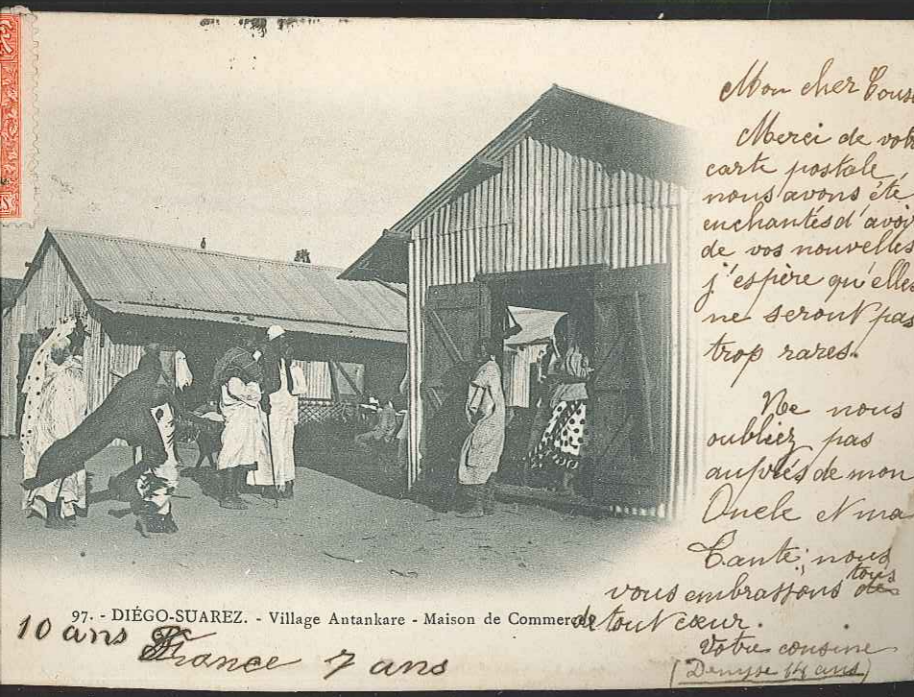 Mon cher Cous
Merci de votr
carte postale,
nous avons été
enchantés d'avoir
de vos nouvelles
j'espère qu'elles
ne seront pas
trop rares.
Ne nous
oubliez pas
auprès de mon
Oncle et ma
Tante; nous
vous embrassons tous
de tout cœur.
Votre cousine
(Denyse 14 ans)
97. - DIÉGO-SUAREZ. - Village Antankare - Maison de Commerce
10 ans France 7 ans